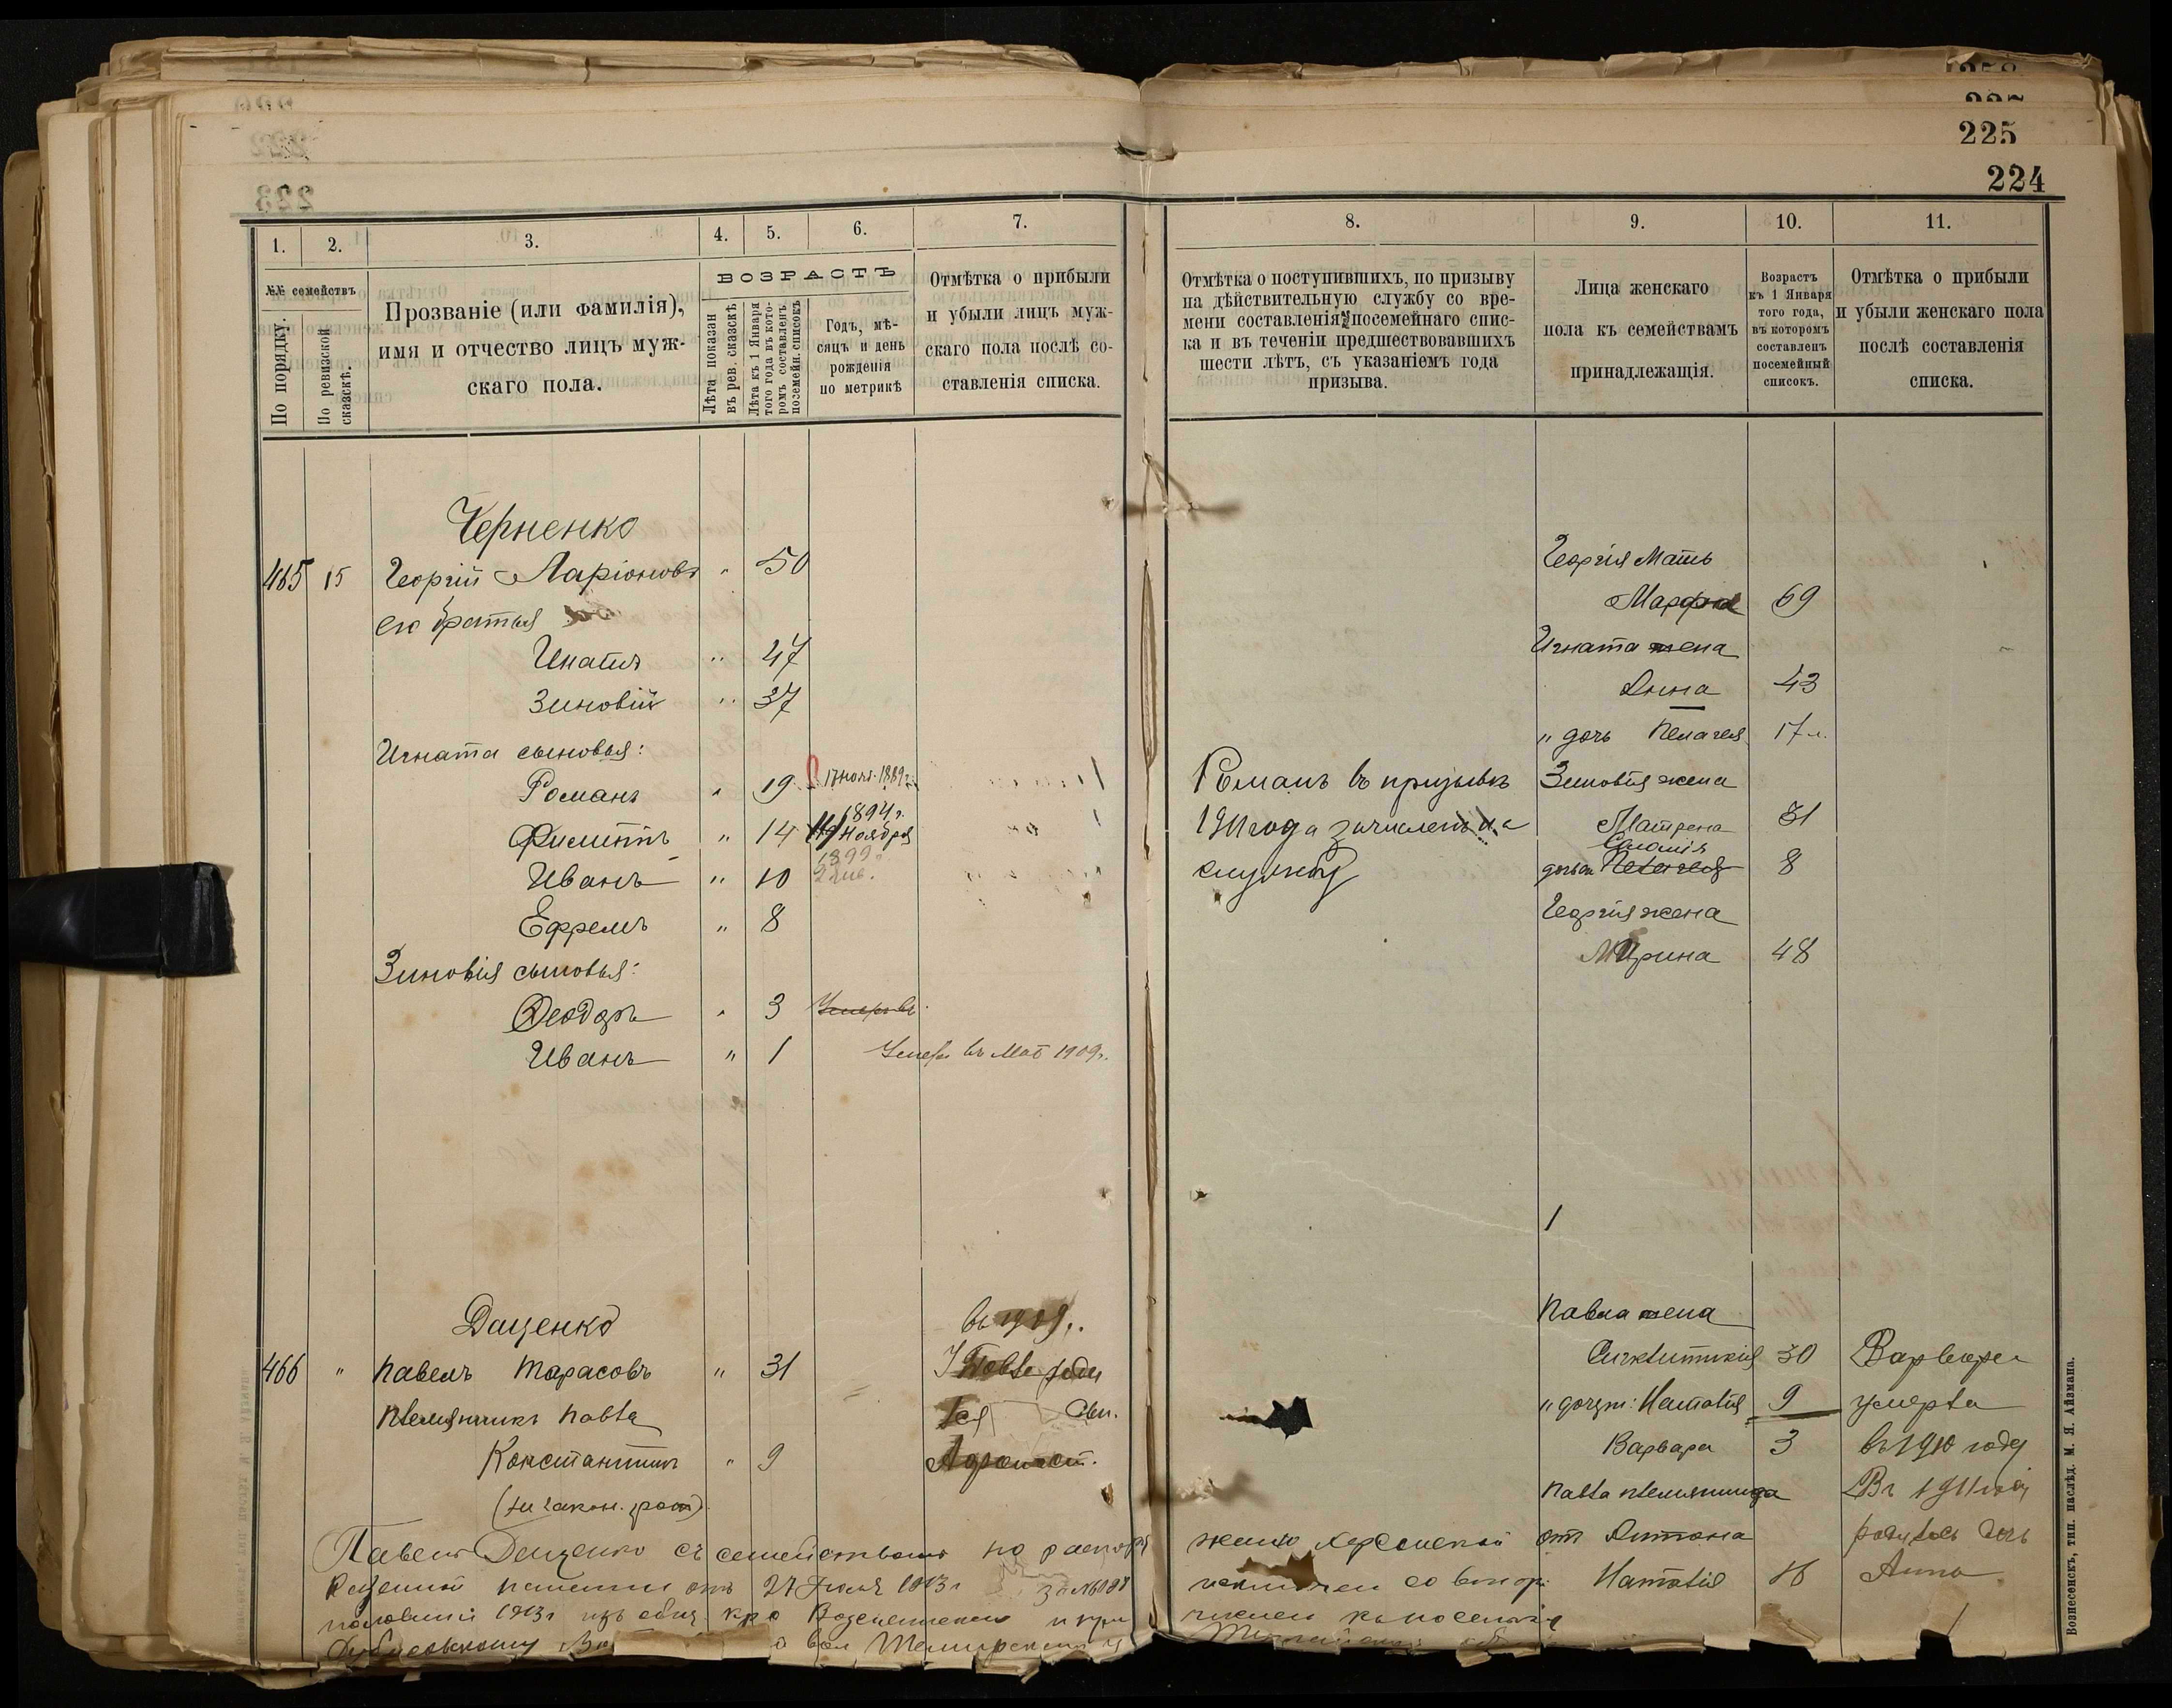 225
224
1.
2.
3.
4.
5.
6.
7.
№№ семействъ
По порядку.
По ревизской сказскѣ.
Прозваніе (или фамилія),
имя и отчество лицъ муж-
скаго пола.
ВОЗРАСТЪ
Лѣта показан
въ рев. сказскѣ.
Лѣта къ 1 Января
того года въ кото-
ромъ составленъ
посемейн. списокъ
Годъ, мѣ-
сяцъ и день
рожденія
по метрикѣ
Отмѣтка о прибыли
и убыли лицъ муж-
скаго пола послѣ со-
ставленія списка.
Черненко
465 15 Георгій Ларіоновъ „ 50
его братья
Игнатъ „ 47
Зиновій „ 37
Игната сыновья:
Романъ „ 19 17 1889 г.
Филиппъ „ 14 1894 г. Ноября
Иванъ „ 10 1899
Ефремъ „ 8
Зиновія сыновья:
Ѳеодоръ „ 3 Умеръ въ
Иванъ „ 1 Умеръ въ Маѣ 1909 г.
Даценко
въ 1909 г.
466 „ Павелъ Тарасовъ „ 31
племянникъ Павла
Константинъ „ 9
(незакон. рожд)
Павелъ Даценко съ семействомъ по распоря
Казенной палаты отъ 27 1913 г за №
половины 1913 г изъ общ. кр Вознесенска и при
8.
9.
10.
11.
Отмѣтка о поступившихъ, по призыву
на дѣйствительную службу со вре-
мени составленія посемейнаго спис-
ка и въ теченіи предшествовавшихъ
шести лѣтъ, съ указаніемъ года
призыва.
Лица женскаго
пола къ семействамъ
принадлежащія.
Возрастъ
къ 1 Января
того года,
въ которомъ
составленъ
посемейный
списокъ.
Отмѣтка о прибыли
и убыли женскаго пола
послѣ составленія
списка.
Георгія Мать
Марфа 69
Игната жена
Анна 43
„ дочь Пелагея 17 л.
Романъ въ призывъ
1911 года зачисленъ на
службу
Зиновія жена
Матрена 31
Саломія
дочь Пелагея 8
Георгія жена
Ирина 48
Павла жена
Синклитикія 30
„ дочери: Наталія 9
Варвара 3
Павла племянница
отъ Антона
Наталія 18
Варвара
умерла
въ 1910 году
Въ 1911 году
родилась дочь
Анна
женію Херсонской
исключен со втор:
числен къ поселк
Вознесенскъ, тип. наслѣд. М. Я. Айзмана.